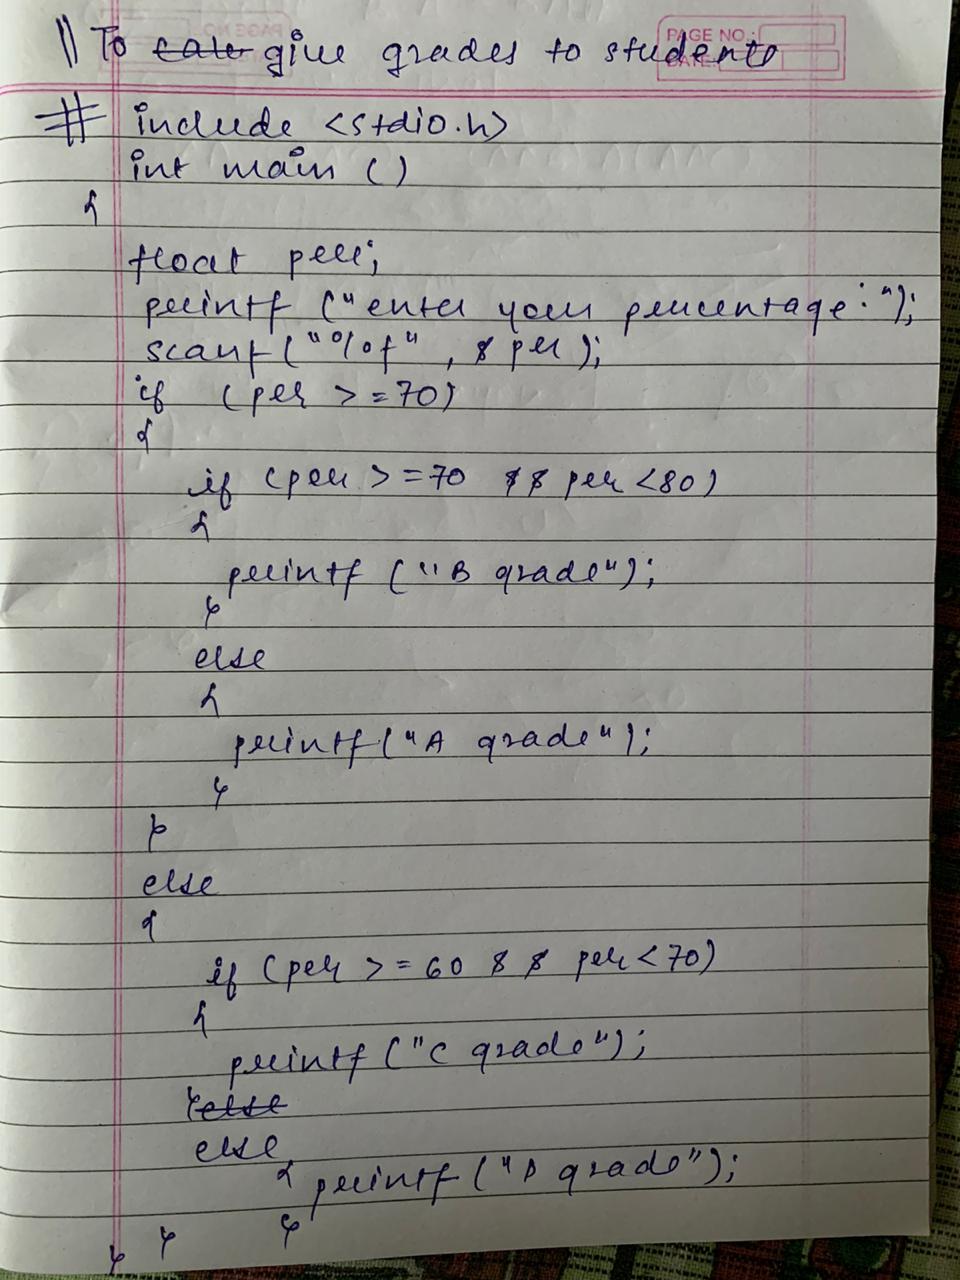 // To cale give grades to students
PAGE NO.:
DATE:
# include <stdio.h>
int main ()
{
float per;
printf ("enter your percentage:");
scanf ("%f", & per);
if (per >=70)
{
if (per >=70 && per <80)
{
printf ("B grade");
}
else
{
printf ("A grade");
}
}
else
{
if (per >=60 && per <70)
{
printf ("C grade");
} else
else
{ printf ("D grade");
} } }